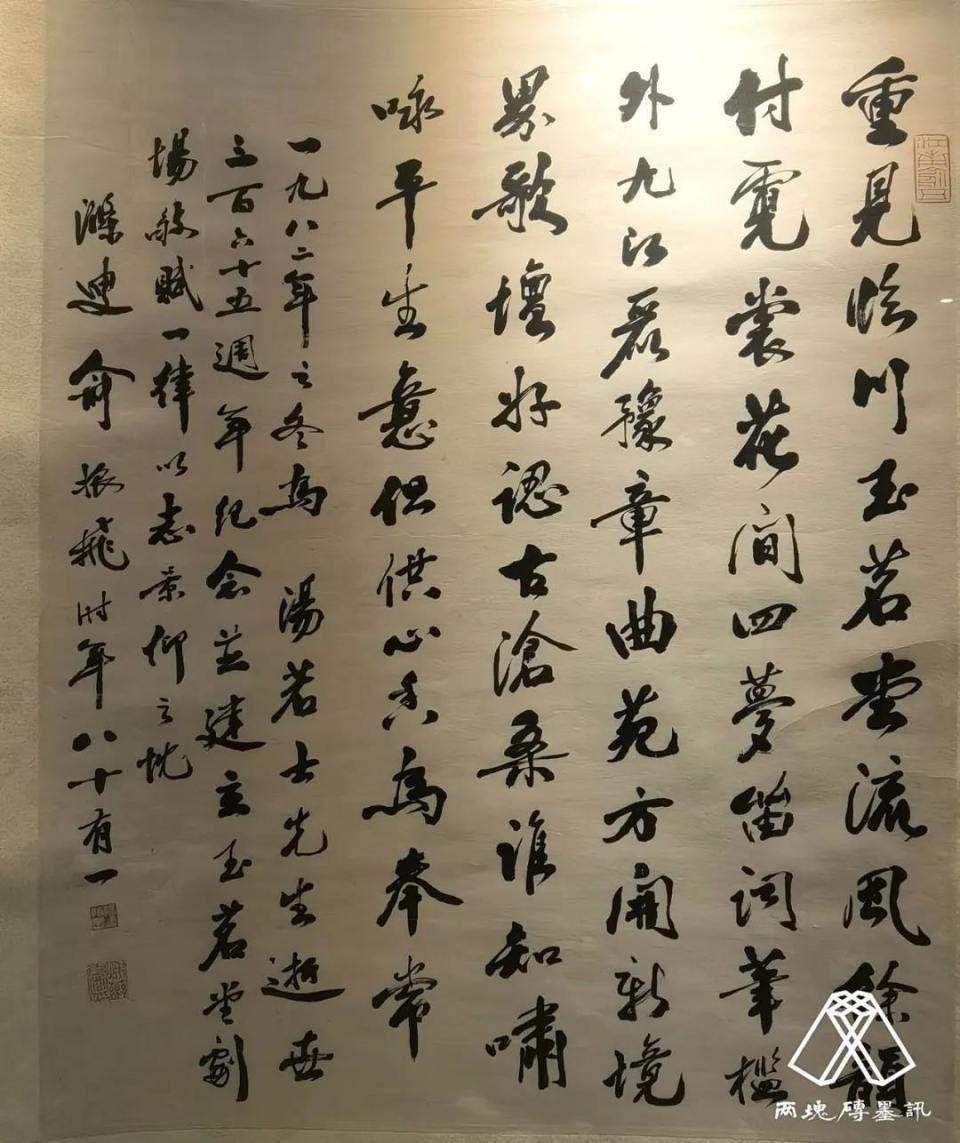 重見臨川玉茗堂流風餘韻
付霓裳花間四夢笛詞筆檻
外九江聶豫章曲苑方開新境
界歌壇好認古滄桑誰知嘯
咏平生意但供心香為奉常
一九八二年之冬為 湯若士先生逝世
三百六十五週年紀念並建立玉茗堂劇
場敬賦一律以志景仰之忱
滌叟俞振飛時年八十有一
两塊磚墨訊